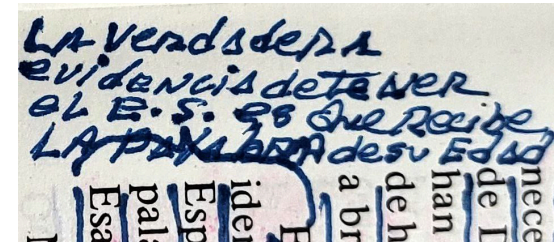 LA verdadera
evidencia de tener
el E.S. es que Recibe
LA PALABRA de su Edad
nece
de I
han
de h
a br
E
iden
Esp
pala
Esa